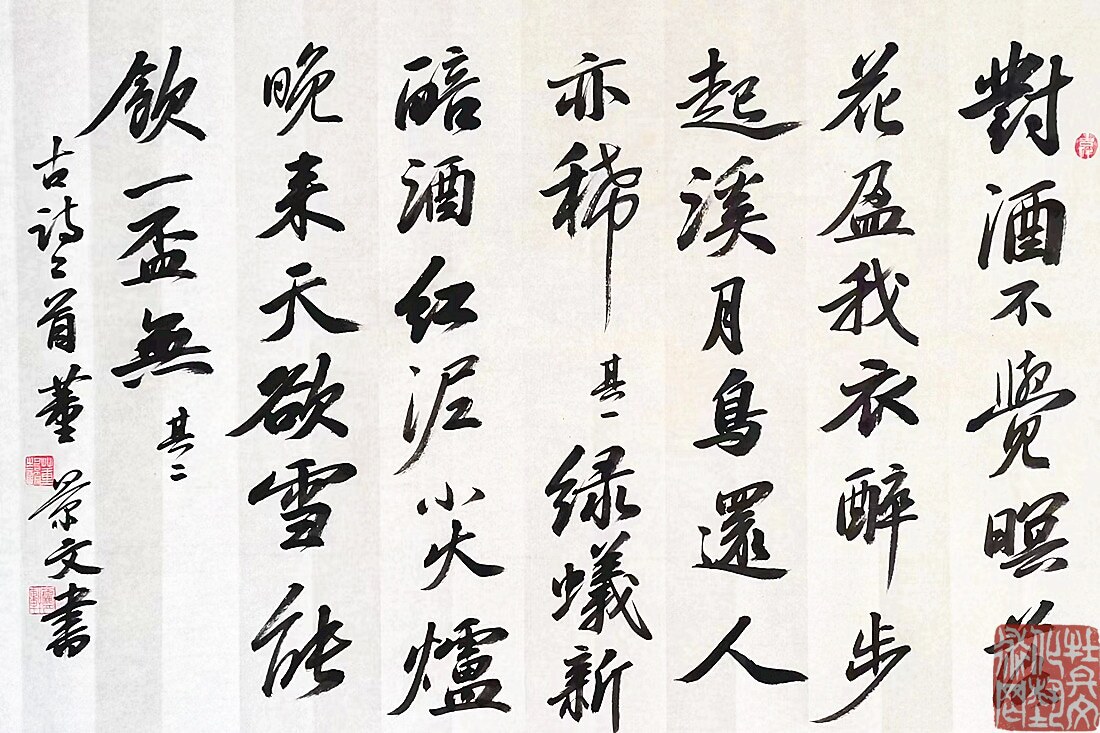 對酒不覺暝
花盈我衣醉步
起溪月鳥還人
亦稀 其一 緑蟻新
醅酒紅泥小火爐
晚来天欲雪能
飲一盃無 其二
古詩二首董景文書